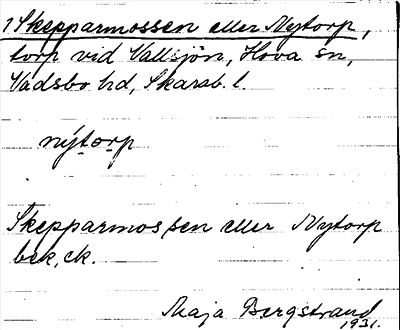 1 Skepparmossen eller Nytorp,
torp vid Vallsjön, Hova sn,
Vadsbo hd, Skarab. l.
nýtorp
Skepparmossen eller Nytorp
bek, ek.
Maja Bergstrand
1931.